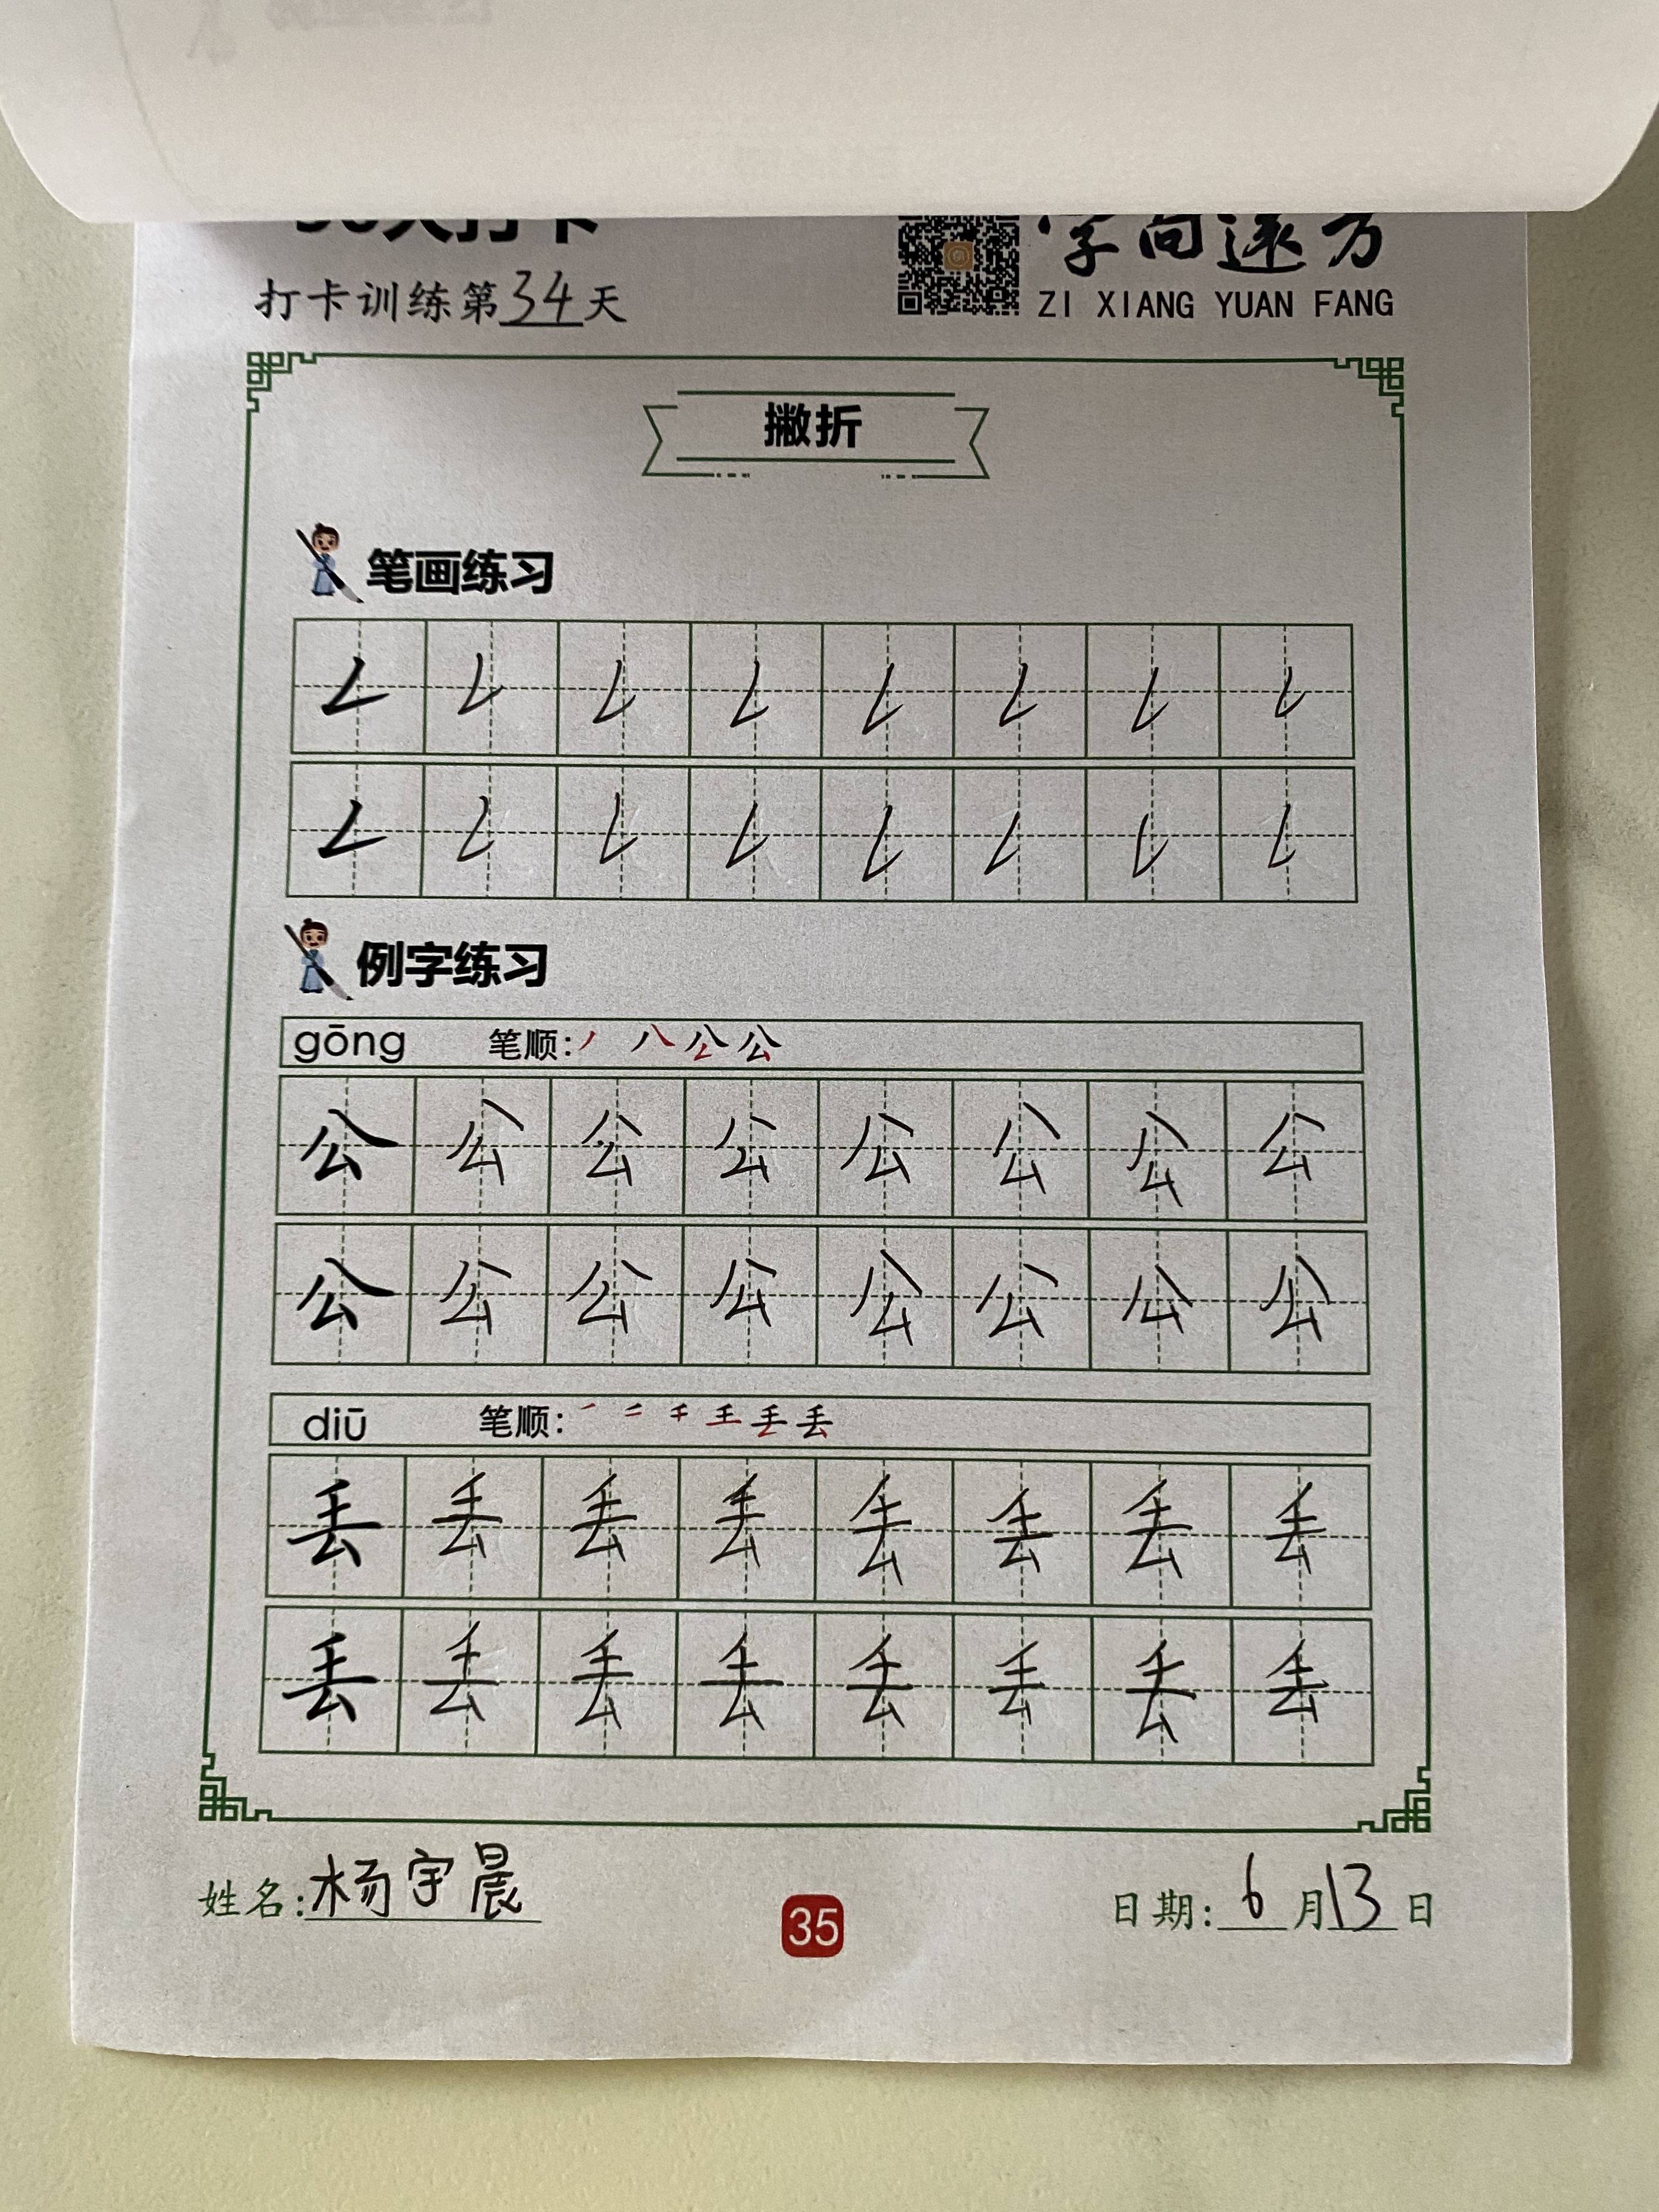 打卡训练第34天
字向远方
ZI XIANG YUAN FANG
撇折
笔画练习
例字练习
gōng 笔顺:
公 公 公 公 公 公 公 公
公 公 公 公 公 公 公 公
diū 笔顺:
丢 丢 丢 丢 丢 丢 丢 丢
丢 丢 丢 丢 丢 丢 丢 丢
姓名:杨宇晨
35
日期:6月13日